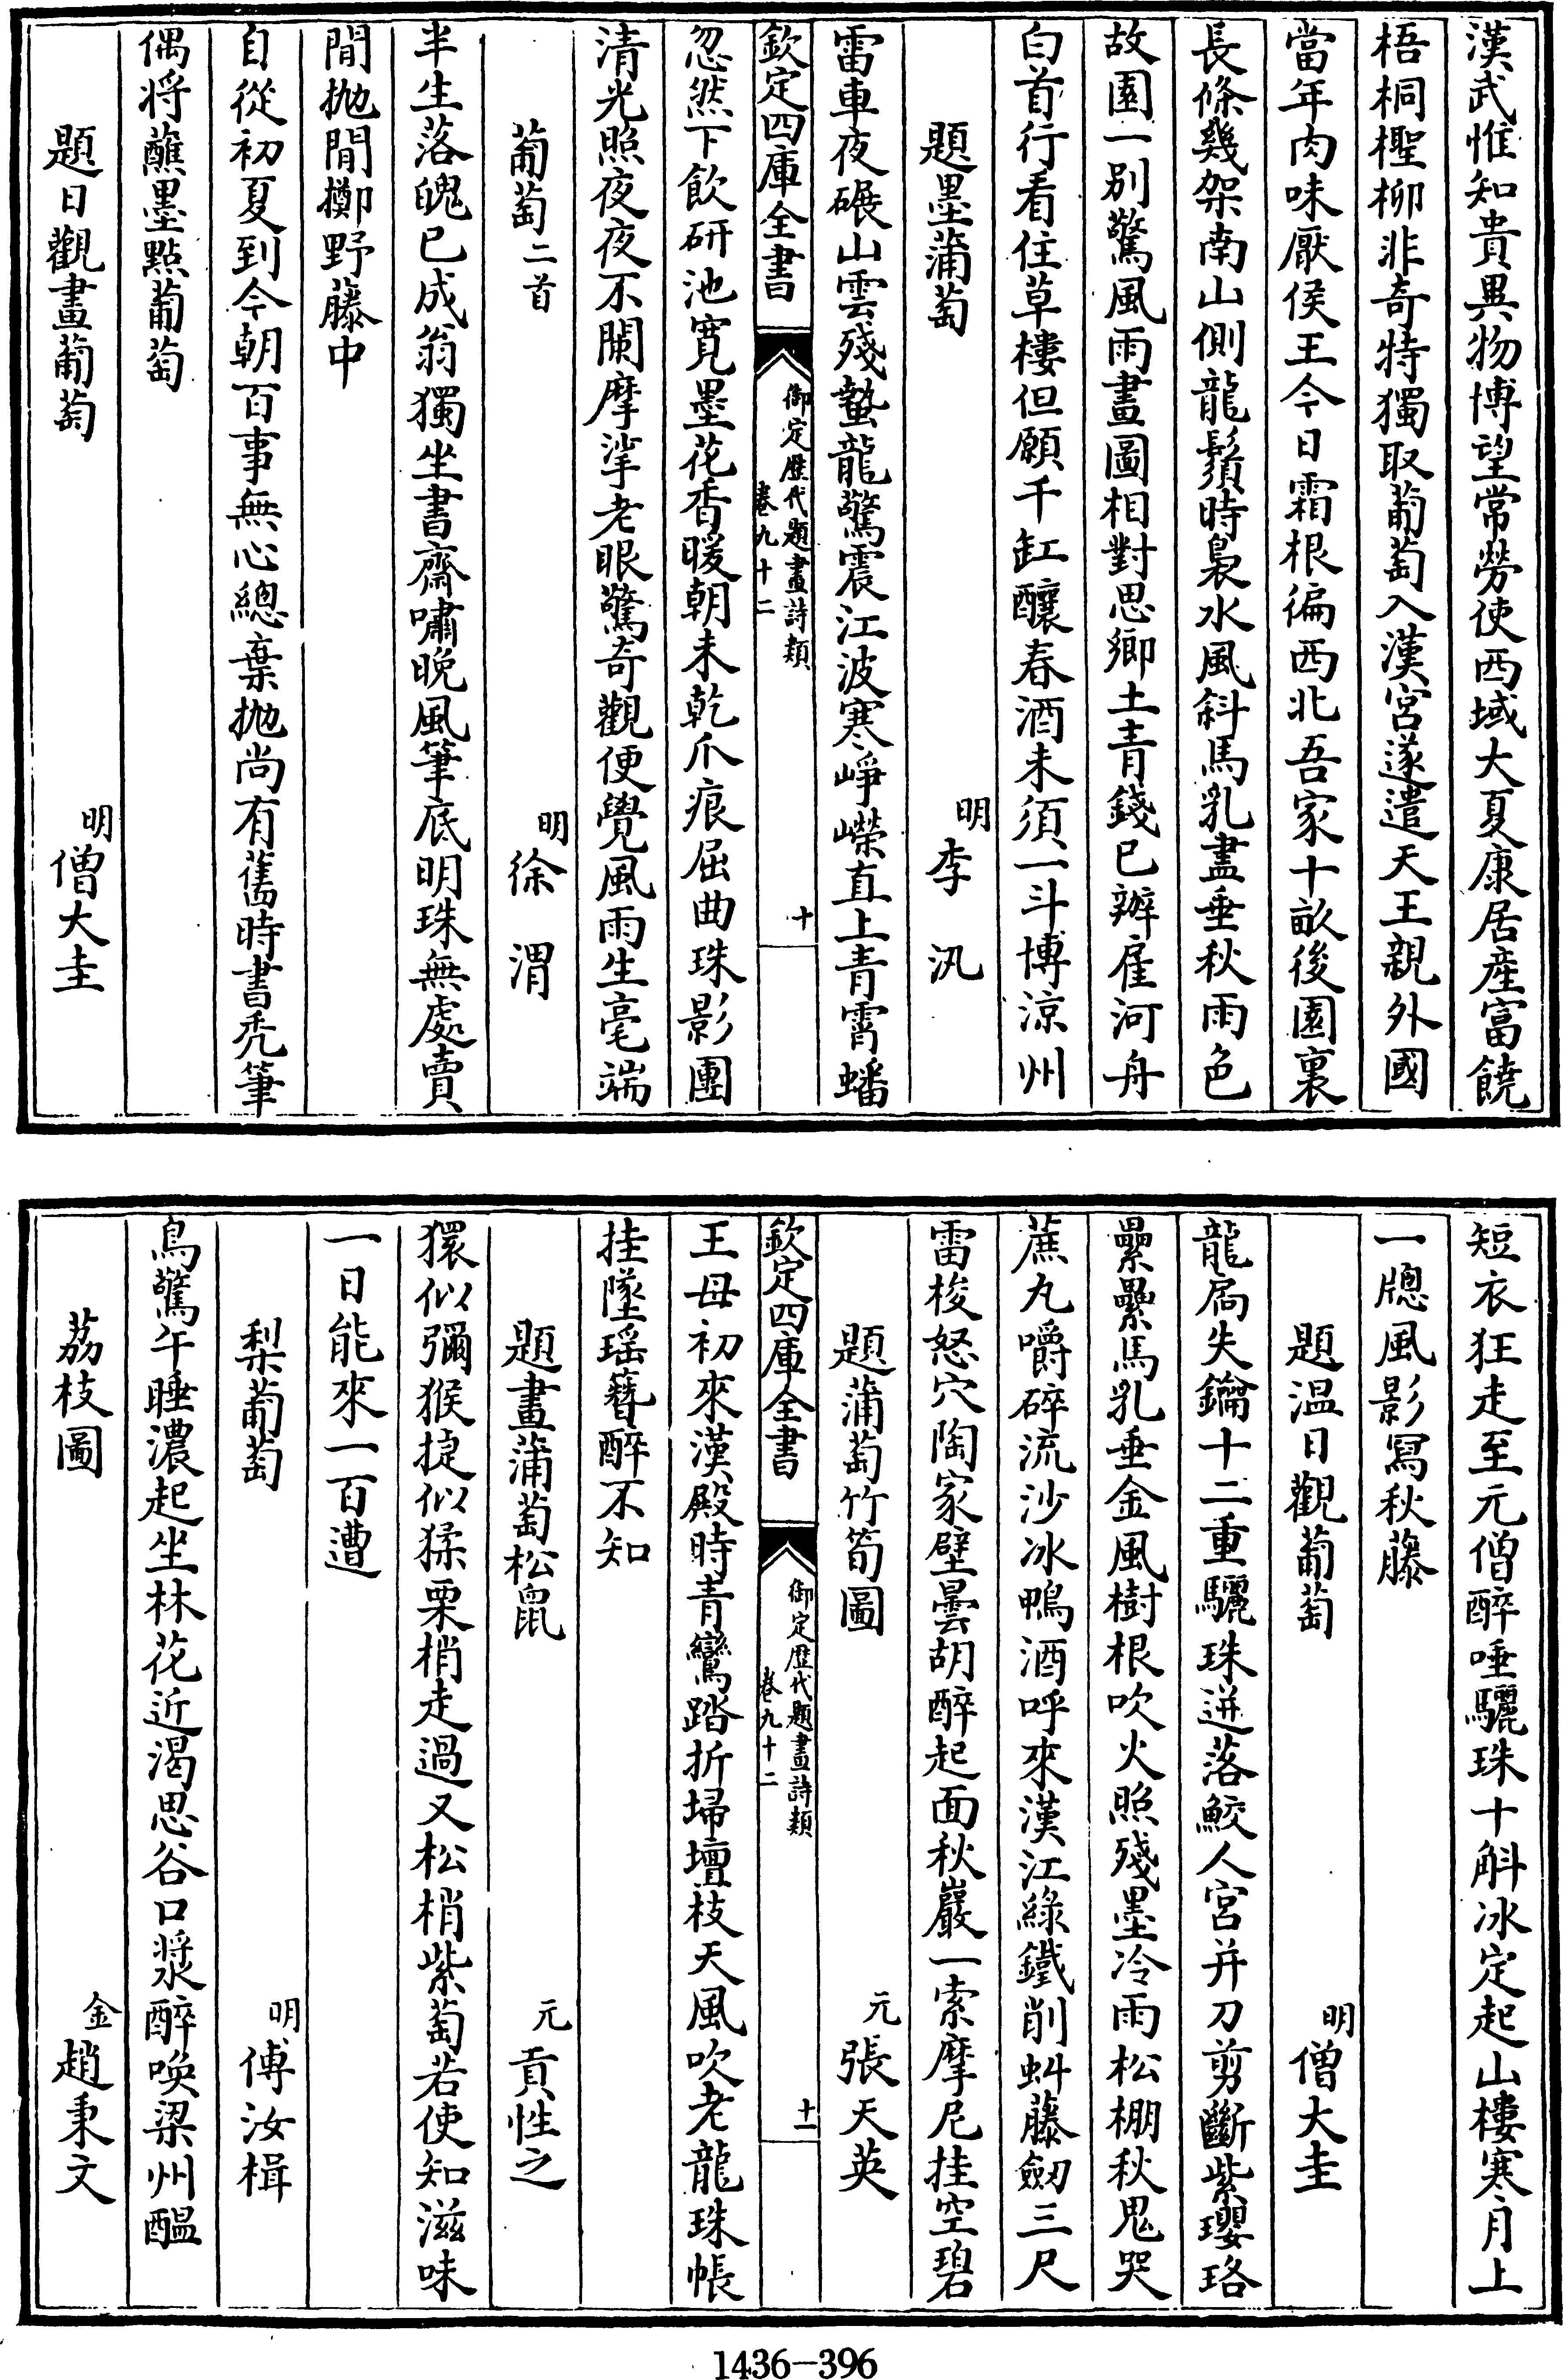 漢武惟知貴異物博望常勞使西域大夏康居産富饒
梧桐檉柳非奇特獨取葡萄入漢宮遂遣天王親外國
當年肉味厭侯王今日霜根徧西北吾家十畝後園裏
長條幾架南山側龍鬚時裊水風斜馬乳盡垂秋雨色
故園一別驚風雨畫圖相對思鄉土青錢已辦雇河舟
白首行看住草樓但願千缸釀春酒未須一斗博涼州
題墨蒲萄
明李汎
雷車夜碾山雲殘蟄龍驚震江波寒崢嶸直上青霄蟠
欽定四庫全書
御定歷代題畫詩類
卷九十二
十
忽然下飲研池寬墨花香暖朝未乾爪痕屈曲珠影團
清光照夜夜不闌摩挲老眼驚奇觀便覺風雨生毫端
葡萄二首
明徐渭
半生落魄已成翁獨坐書齋嘯晚風筆底明珠無處賣
閒抛閒擲野藤中
自從初夏到今朝百事無心總棄抛尚有舊時書禿筆
偶將蘸墨點葡萄
題日觀畫葡萄
明僧大圭
短衣狂走至元僧醉唾驪珠十斛冰定起山樓寒月上
一牕風影寫秋藤
題温日觀葡萄
明僧大圭
龍扃失鑰十二重驪珠迸落鮫人宮并刀剪斷紫瓔珞
纍纍馬乳垂金風樹根吹火照殘墨冷雨松棚秋鬼哭
蔗丸嚼碎流沙冰鴨酒呼來漢江綠鐵削虯藤劒三尺
雷梭怒穴陶家壁曇胡醉起面秋巖一索摩尼挂空碧
題蒲萄竹筍圖
元張天英
欽定四庫全書
御定歷代題畫詩類
卷九十二
十一
王母初來漢殿時青鸞踏折埽壇枝天風吹老龍珠帳
挂墜瑶簪醉不知
題畫蒲萄松鼠
元貢性之
獧似獼猴捷似猱栗梢走過又松梢紫萄若使知滋味
一日能來一百遭
梨葡萄
明傅汝楫
鳥驚午睡濃起坐林花近渴思谷口漿醉喚梁州醖
荔枝圖
金趙秉文
1436-396